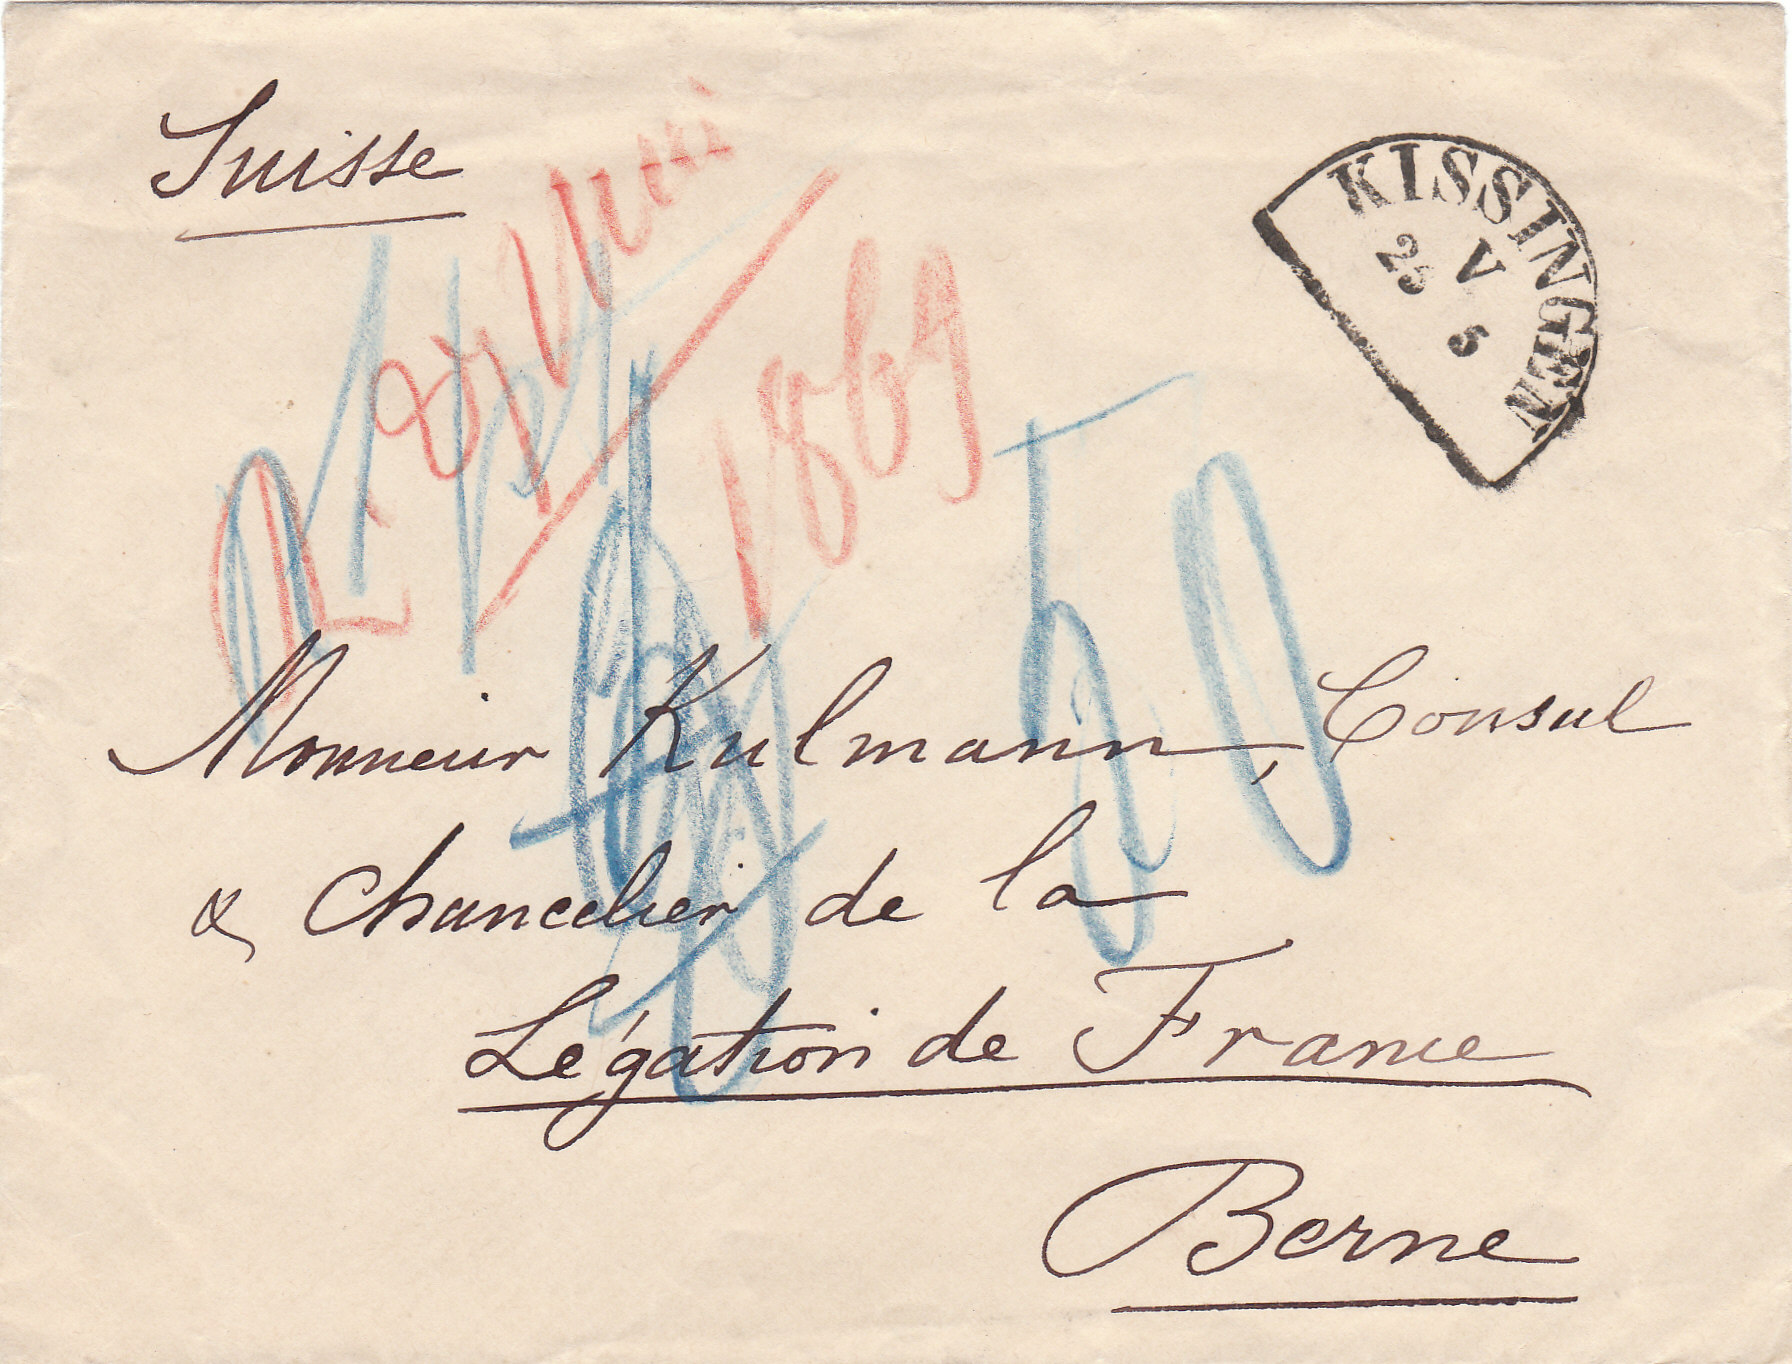 Suisse
KISSINGEN
25 V
5
1869
50
Monsieur Kulmann, Consul
& Chancelier de la
Légation de France
Berne